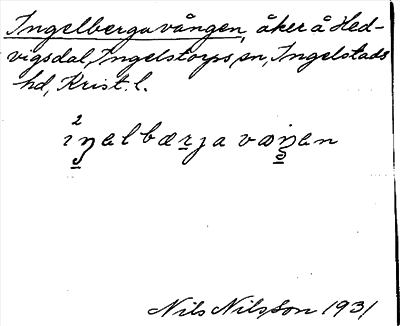 Ingelbergavången, åker å Hed-
vigsdal, Ingelstorps sn, Ingelstads
hd, Krist. l.
2
Nils Nilsson 1931